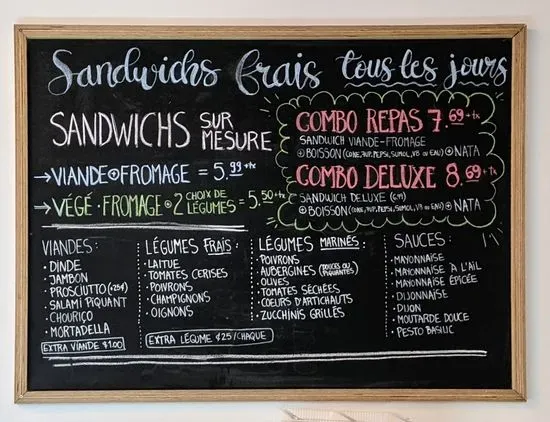 Sandwichs frais tous les jours
SANDWICHS SUR MESURE
→ VIANDE + FROMAGE = 5.99 + tx
→ VÉGÉ · FROMAGE + 2 CHOIX DE LÉGUMES = 5.50 + tx
COMBO REPAS 7.69 + tx
SANDWICH VIANDE-FROMAGE
+ BOISSON (COKE, 7UP, PEPSI, SUMOL, V8 OU EAU) + NATA
COMBO DELUXE 8.69 + tx
SANDWICH DELUXE
+ BOISSON (COKE, 7UP, PEPSI, SUMOL, V8 OU EAU) + NATA
VIANDES :
· DINDE
· JAMBON
· PROSCIUTTO (+25¢)
· SALAMI PIQUANT
· CHOURIÇO
· MORTADELLA
EXTRA VIANDE $1.00
LÉGUMES FRAIS :
· LAITUE
· TOMATES CERISES
· POIVRONS
· CHAMPIGNONS
· OIGNONS
EXTRA LÉGUME ¢25/CHAQUE
LÉGUMES MARINÉS :
· POIVRONS
· AUBERGINES (DOUCES OU PIQUANTES)
· OLIVES
· TOMATES SÉCHÉES
· COEURS D'ARTICHAUTS
· ZUCCHINIS GRILLÉS
SAUCES :
· MAYONNAISE
· MAYONNAISE À L'AIL
· MAYONNAISE ÉPICÉE
· DIJONNAISE
· DIJON
· MOUTARDE DOUCE
· PESTO BASILIC